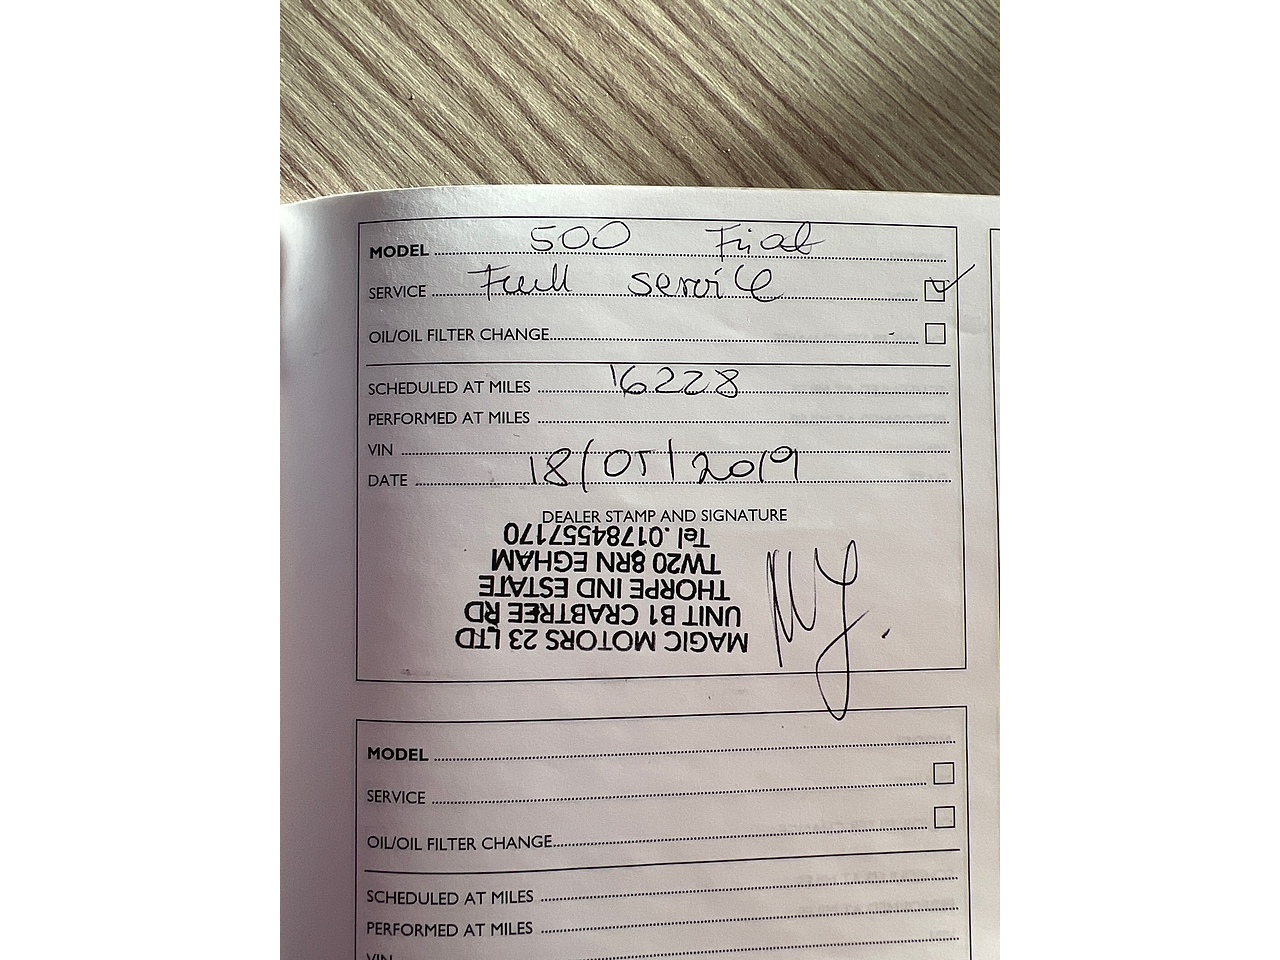 MODEL 500 Fiat
SERVICE Full service
OIL/OIL FILTER CHANGE
SCHEDULED AT MILES 16228
PERFORMED AT MILES
VIN
DATE 18/05/2019
DEALER STAMP AND SIGNATURE
MAGIC MOTORS 23 LTD
UNIT B1 CRABTREE RD
THORPE IND ESTATE
TW20 8RN EGHAM
Tel.01784557170
MODEL
SERVICE
OIL/OIL FILTER CHANGE
SCHEDULED AT MILES
PERFORMED AT MILES
VIN